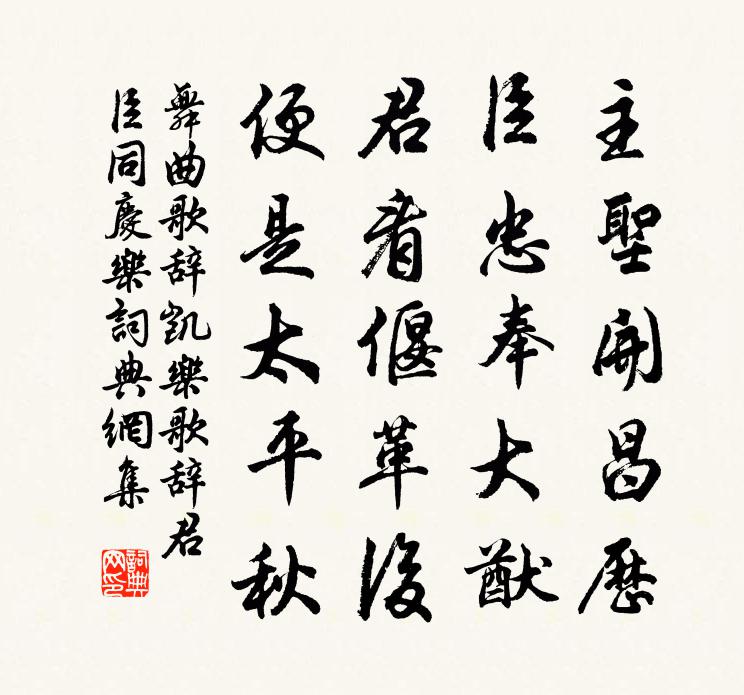 主聖開昌歷
臣忠奉大猷
君看偃革後
便是太平秋
舞曲歌辞凱樂歌辞君
臣同慶樂詞典網集
詞典網印